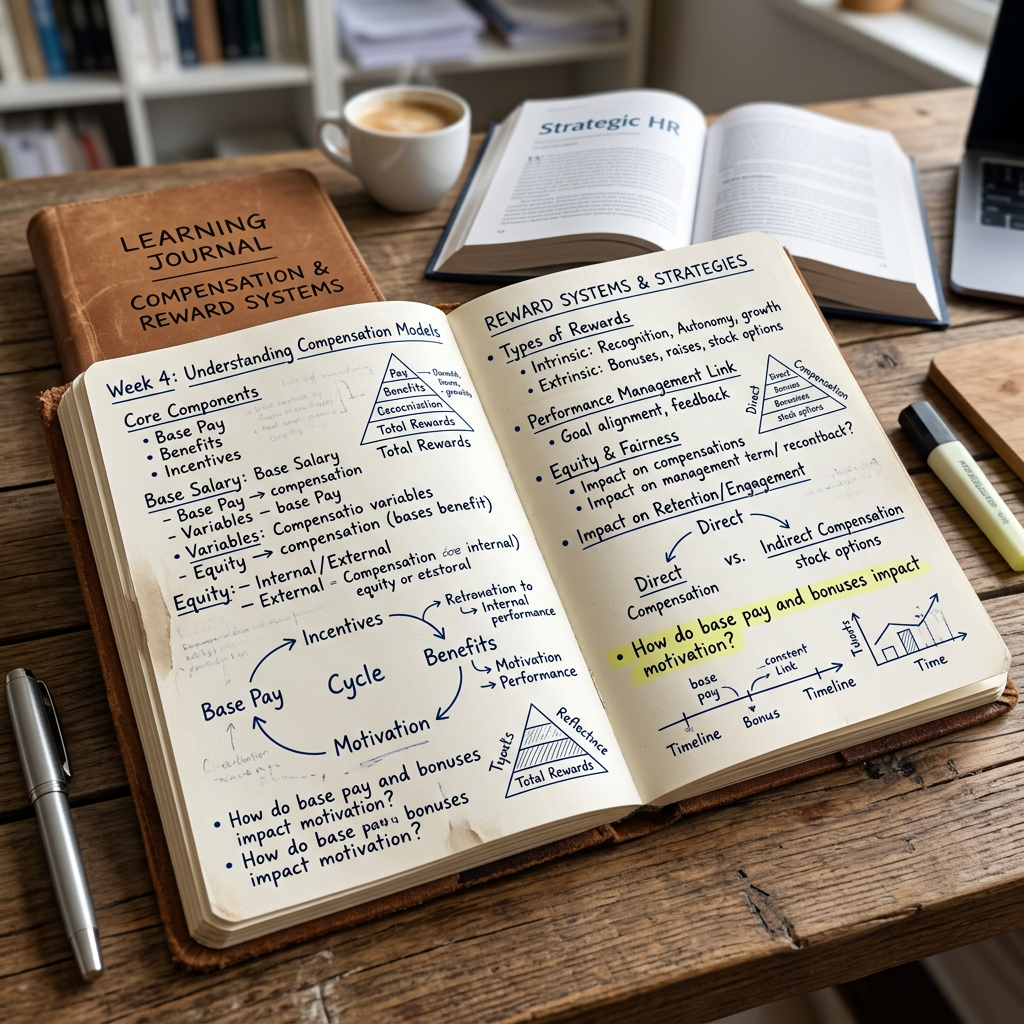 LEARNING
JOURNAL
COMPENSATION &
REWARD SYSTEMS
Strategic HR
Week 4: Understanding Compensation Models
Core Components
• Base Pay
• Benefits
• Incentives
Pay
Benefits
Cecocniasation
Total Rewards
Total Rewards
Base Salary: Base Salary
- Base Pay → compensation
- Variables - base Pay
• Variables: Compensatio variables
- Equity → compensation (bases benefit)
Equity: - Internal/External
- External = Compensation internal)
equity or
Incentives
Benefits
Motivation
Base Pay
Cycle
→ Internal
performance
→ Motivation
→ Performance
Total Rewards
• How do base pay and bonuses
impact motivation?
• How do base bonuses
impact motivation?
REWARD SYSTEMS & STRATEGIES
• Types of Rewards
• Intrinsic: Recognition, Autonomy, growth
• Extrinsic: Bonuses, raises, stock options
• Performance Management Link
• Goal alignment, feedback
Direct
Compensation
Direct
Bonuses
stock options
• Equity & Fairness
• Impact on compensations
• Impact on management term/ recontback?
• Impact on Retention/Engagement
Direct
Direct
Compensation
vs.
Indirect Compensation
stock options
• How do base pay and bonuses impact
motivation?
base
pay
Constent
Link
Timeline
Bonus
Timeline
Time